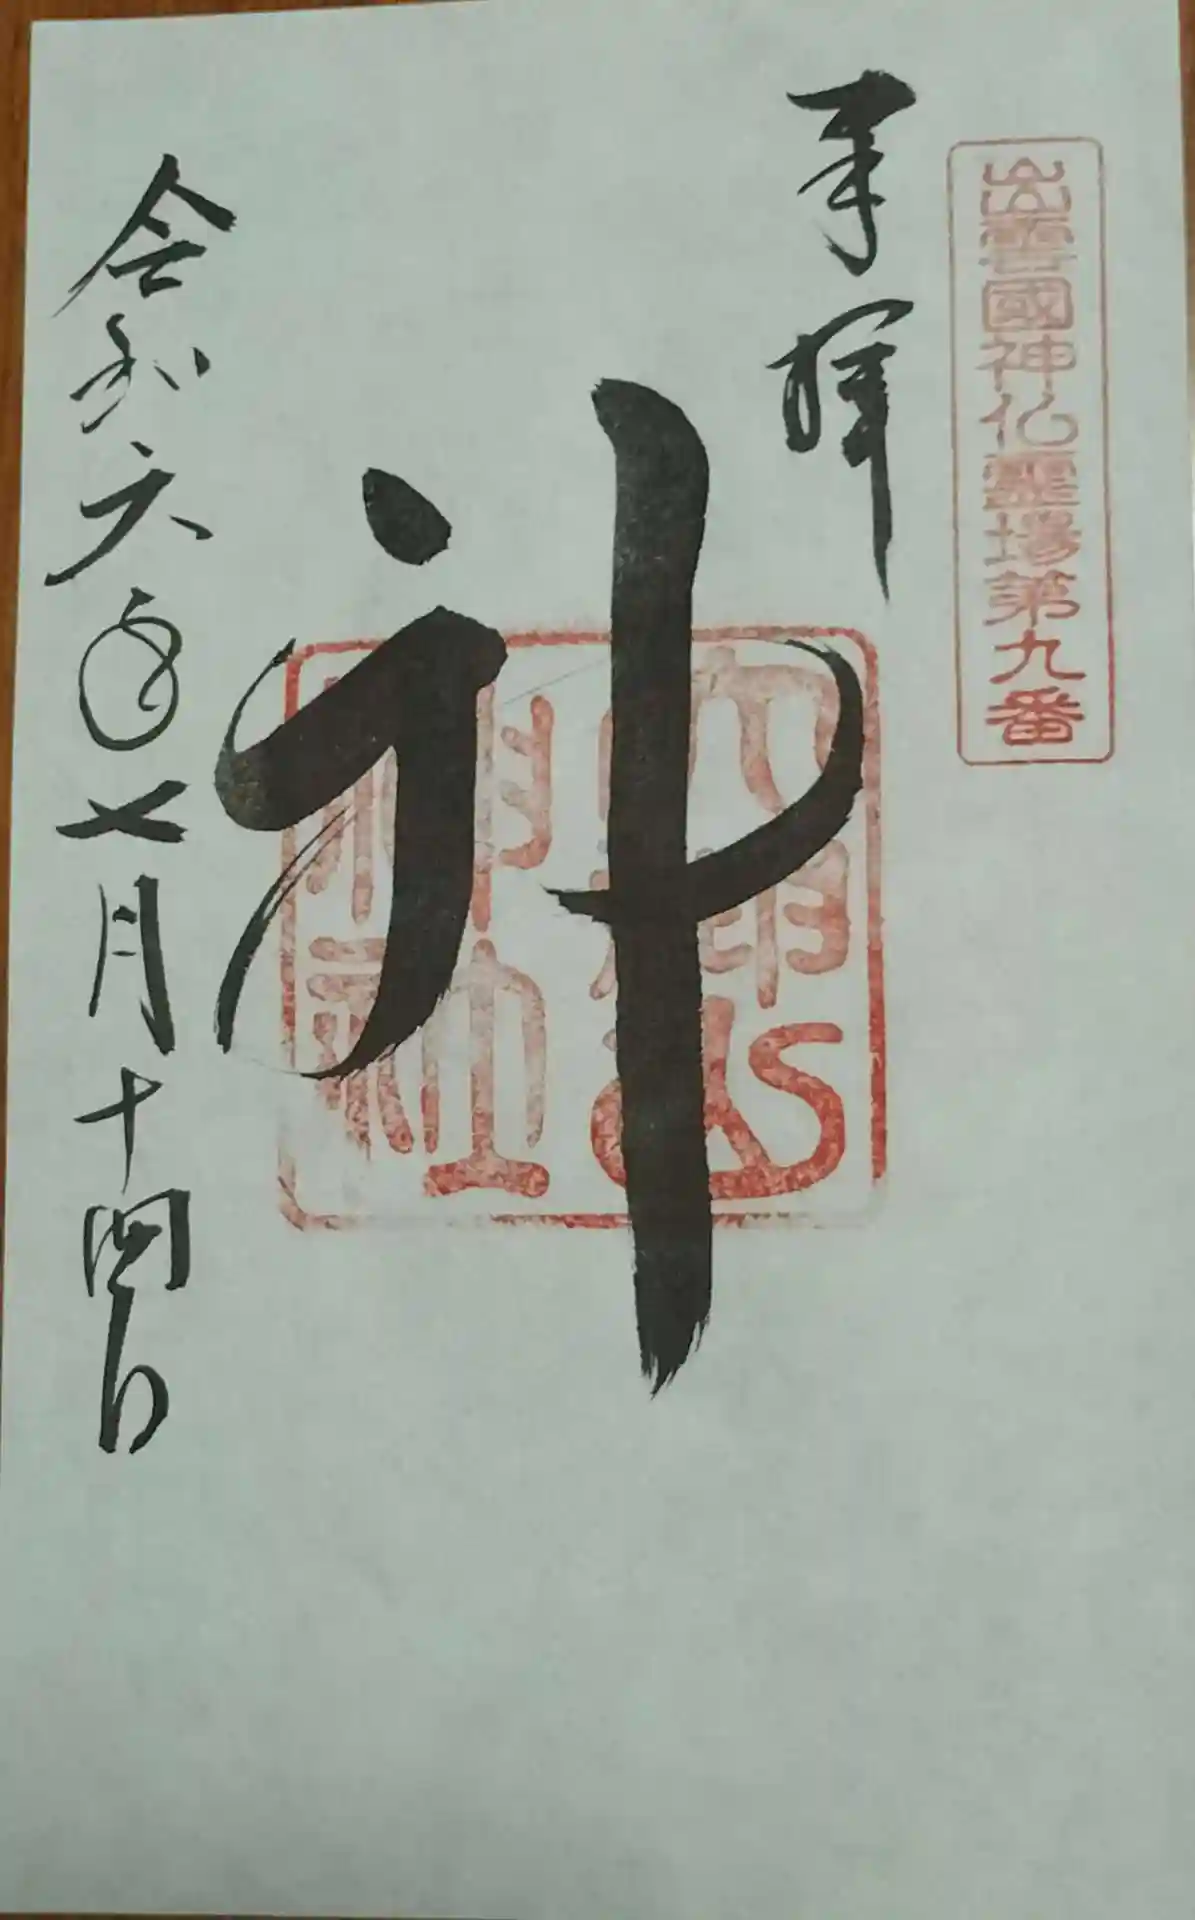 出雲國神仏霊場第九番
奉拝
神
大神山
神社
令和六年七月十四日